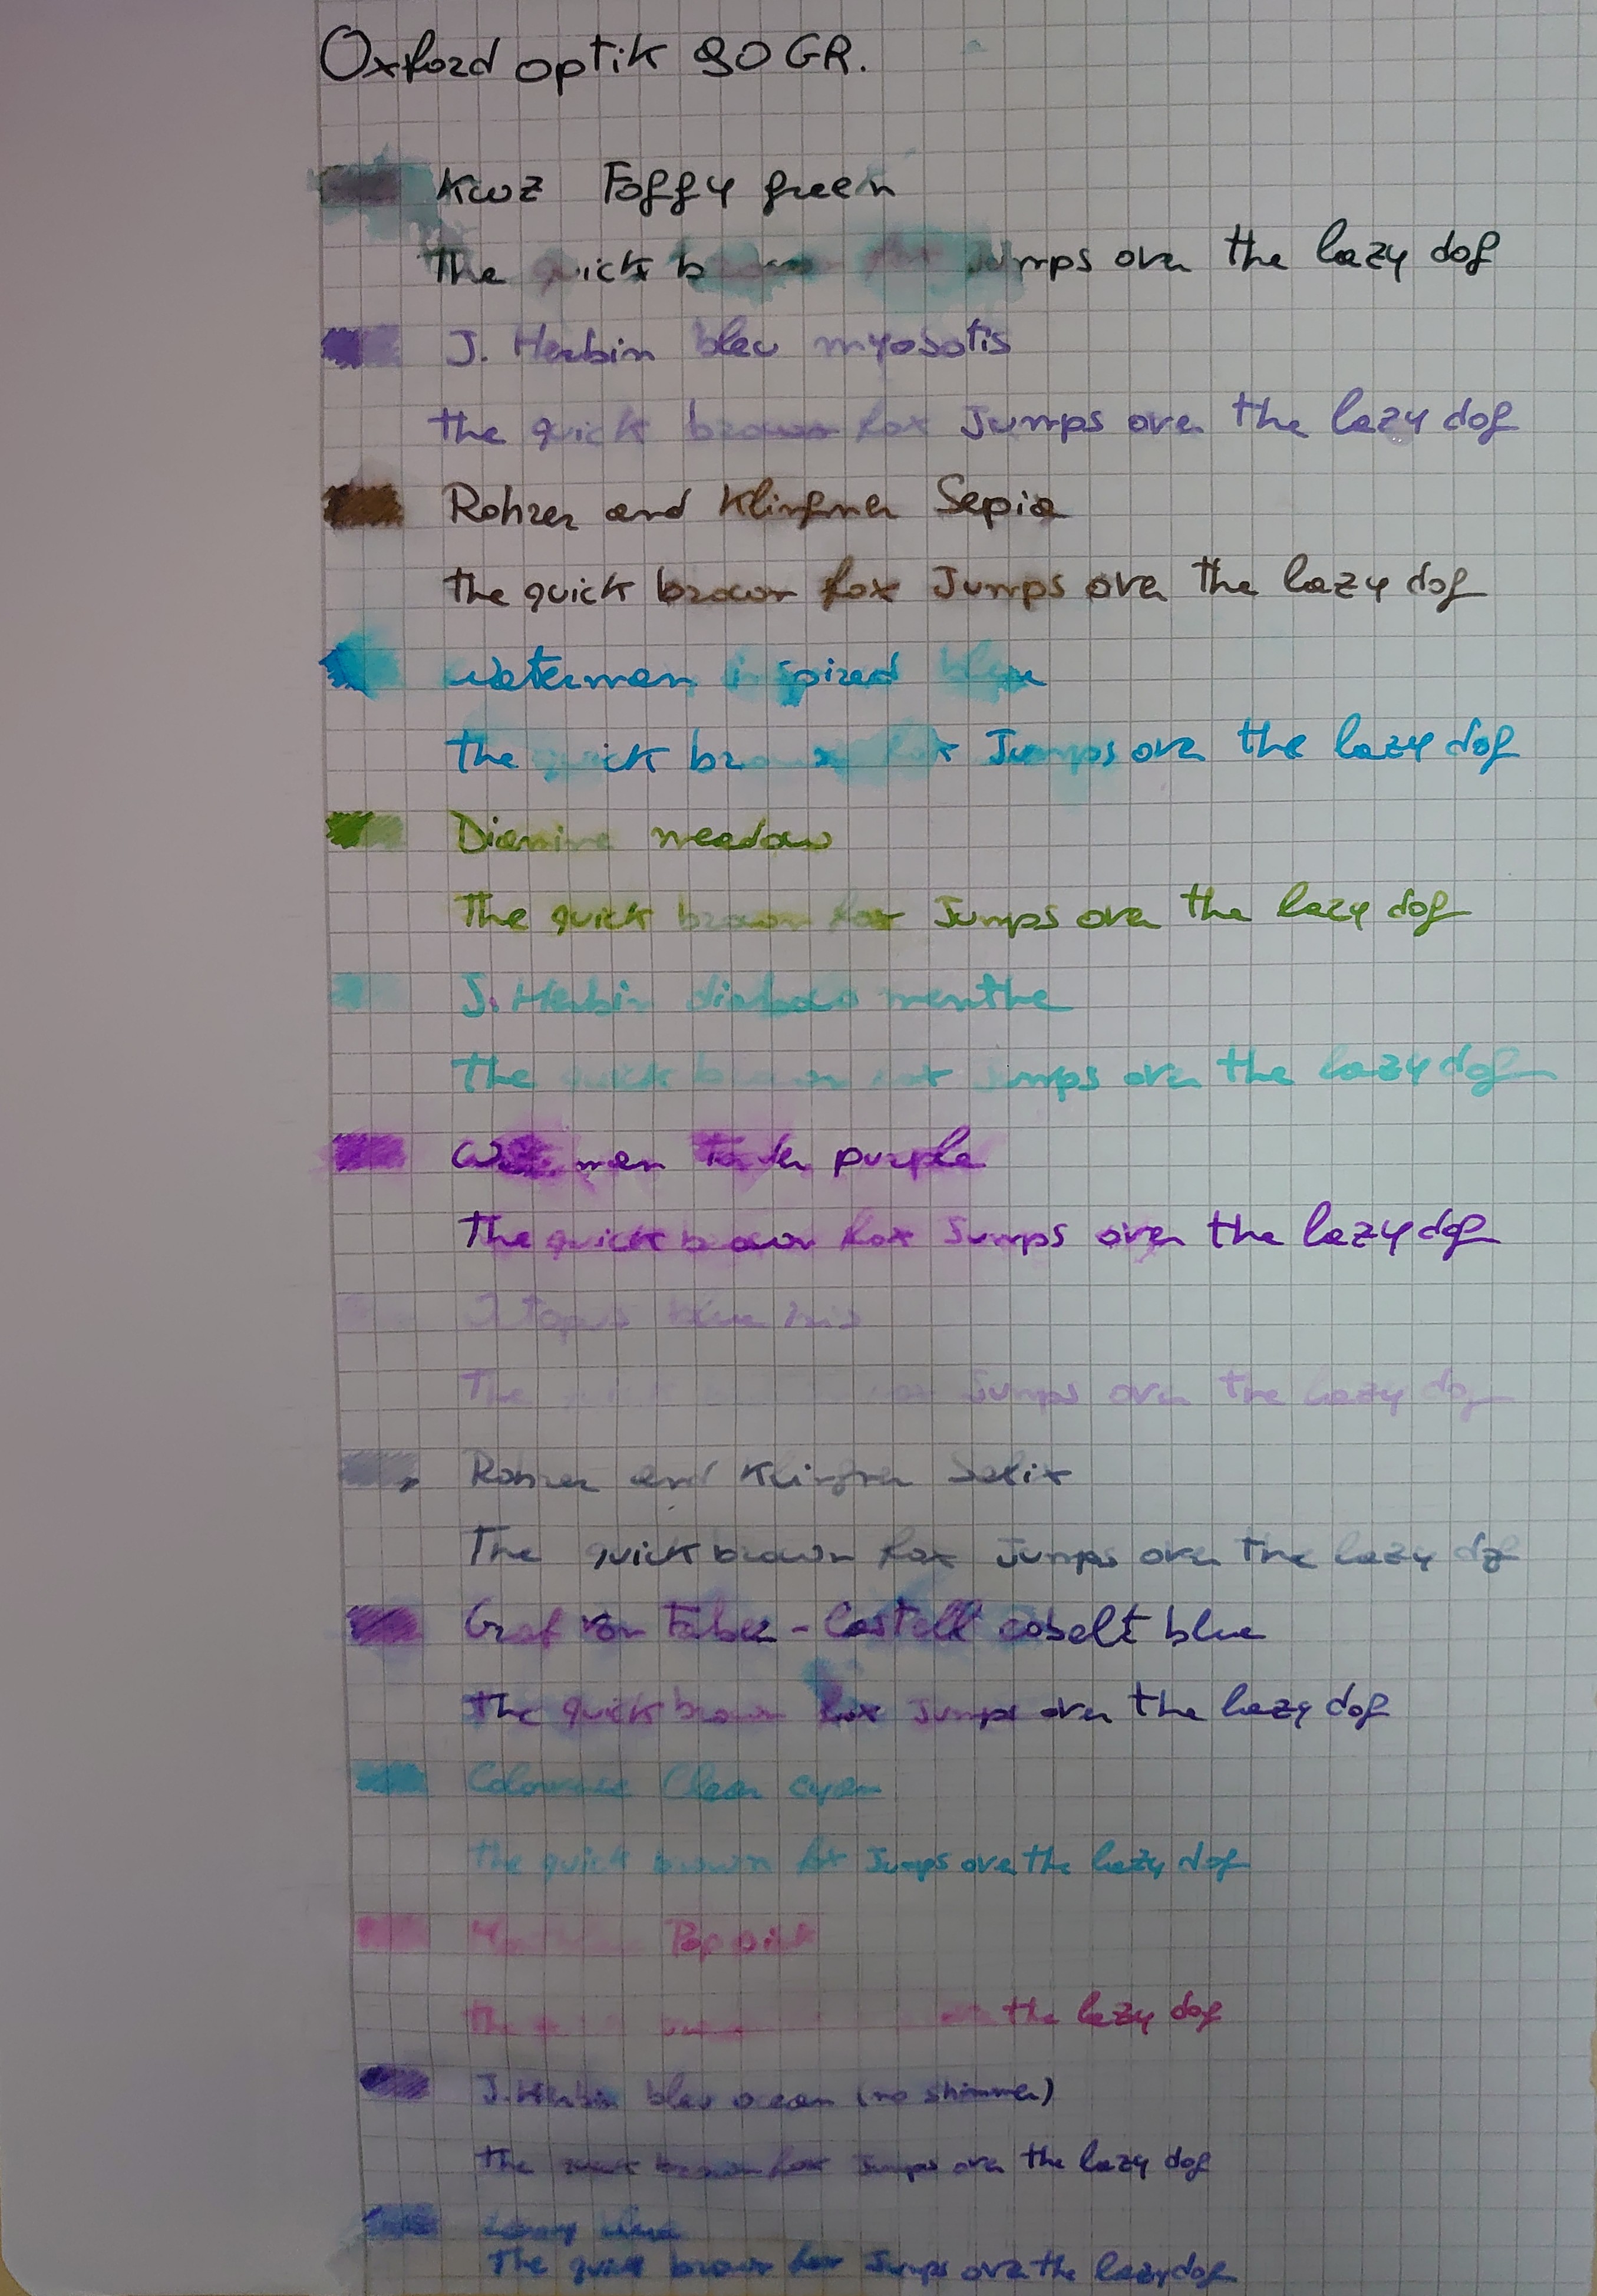 Oxford optik 90 GR.
Kwz Foggy green
The quick b jumps over the lazy dog
J. Herbin bleu myosotis
the quick brown fox Jumps over the lazy dog
Rohrer and Klingner Sepia
the quick brown fox Jumps over the lazy dog
Waterman inspired blue
the quick brown fox Jumps over the lazy dog
Diamine meadow
The quick brown fox Jumps over the lazy dog
J. Herbin diabolo menthe
The quick brown fox jumps over the lazy dog
Waterman tender purple
The quick brown fox Jumps over the lazy dog
blue
The quick fox Jumps over the lazy dog
Rohrer and Klingner Salix
The quick brown fox Jumps over the lazy dog
Graf von Faber-Castell cobalt blue
the quick brown fox Jumps over the lazy dog
Colorverse Clean cyan
the quick brown fox Jumps over the lazy dog
the the lazy dog
J. Herbin bleu ocean (no shimmer)
the quick brown fox Jumps over the lazy dog
blue
The quick brown fox Jumps over the lazy dog